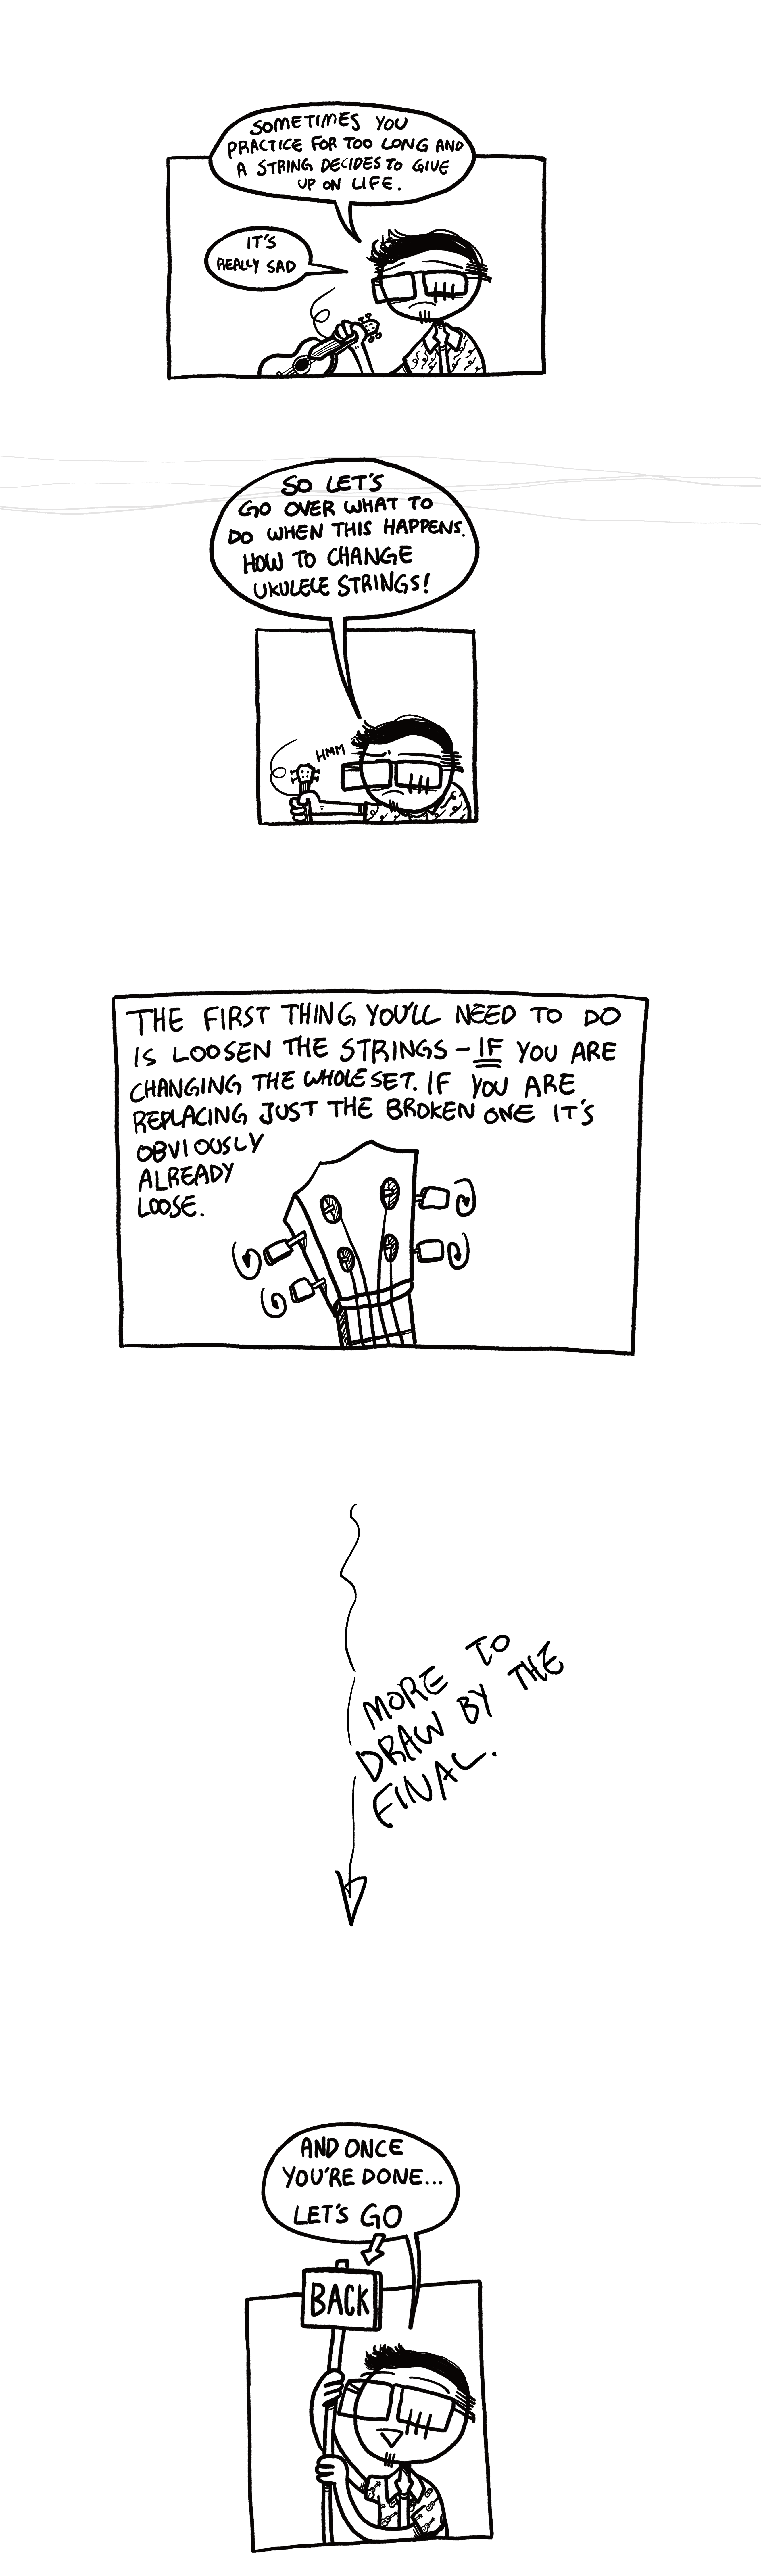 SOMETIMES YOU
PRACTICE FOR TOO LONG AND
A STRING DECIDES TO GIVE
UP ON LIFE.
IT'S
REALLY SAD
SO LET'S
GO OVER WHAT TO
DO WHEN THIS HAPPENS.
HOW TO CHANGE
UKULELE STRINGS!
HMM
THE FIRST THING YOU'LL NEED TO DO
IS LOOSEN THE STRINGS - IF YOU ARE
CHANGING THE WHOLE SET. IF YOU ARE
REPLACING JUST THE BROKEN ONE IT'S
OBVIOUSLY
ALREADY
LOOSE.
MORE TO
DRAW BY THE
FINAL.
AND ONCE
YOU'RE DONE...
LET'S GO
BACK